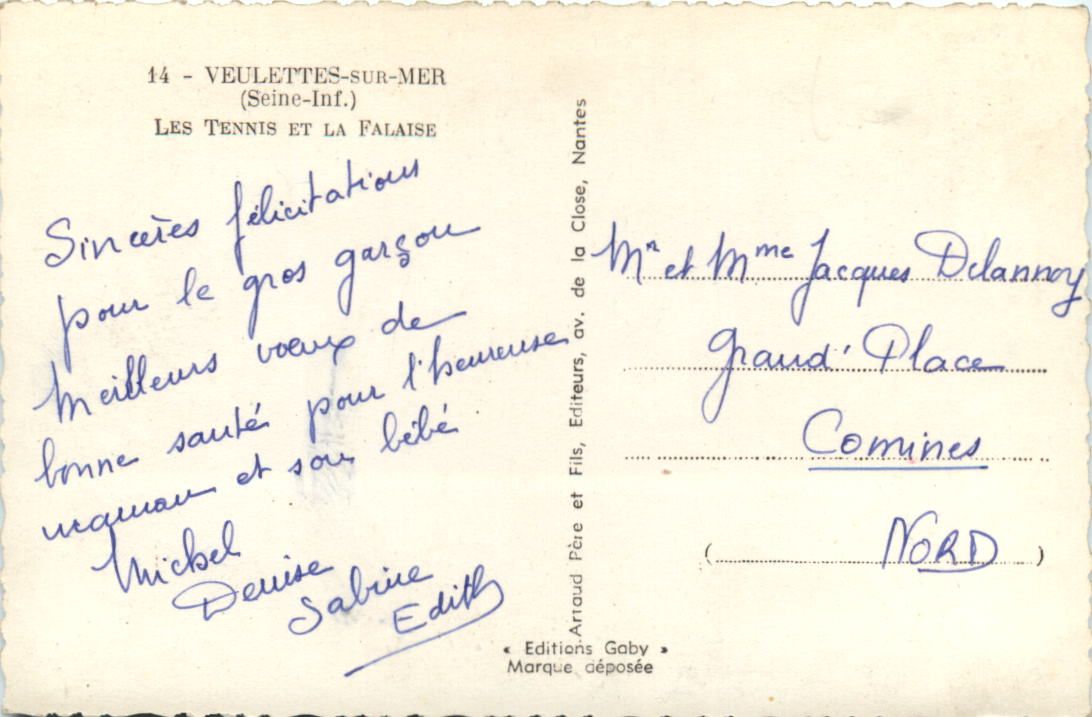 14 - VEULETTES-SUR-MER
(Seine-Inf.)
LES TENNIS ET LA FALAISE
Sincères félicitations
pour le gros garçon
Meilleurs voeux de
bonne santé pour l'heureuse
maman et son bébé
Michel
Denise
Sabine
Edith
Artaud Père et Fils, Editeurs, av. de la Close, Nantes
« Editions Gaby »
Marque déposée
Mr et Mme Jacques Delannoy
Grand' Place
Comines
(NORD)